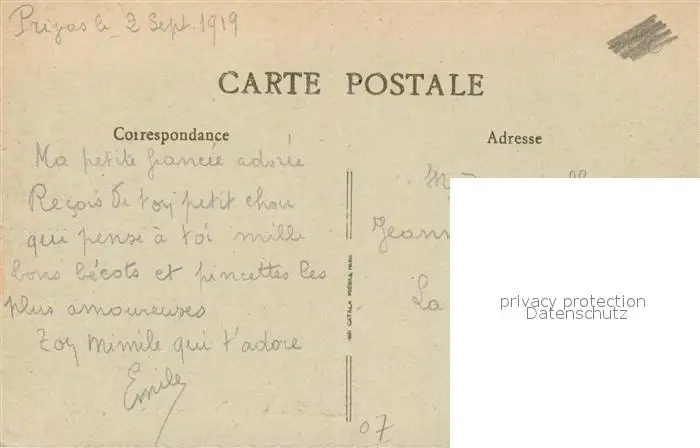 Privas le 2 Sept. 1919
CARTE POSTALE
Correspondance
Adresse
Ma petite fiancée adorée
Reçois de ton petit chou
qui pense à toi mille
bons bécots et pincettes les
plus amoureuses
Ton Mimile qui t'adore
Emile
Jeann
La
07
privacy protection
Datenschutz